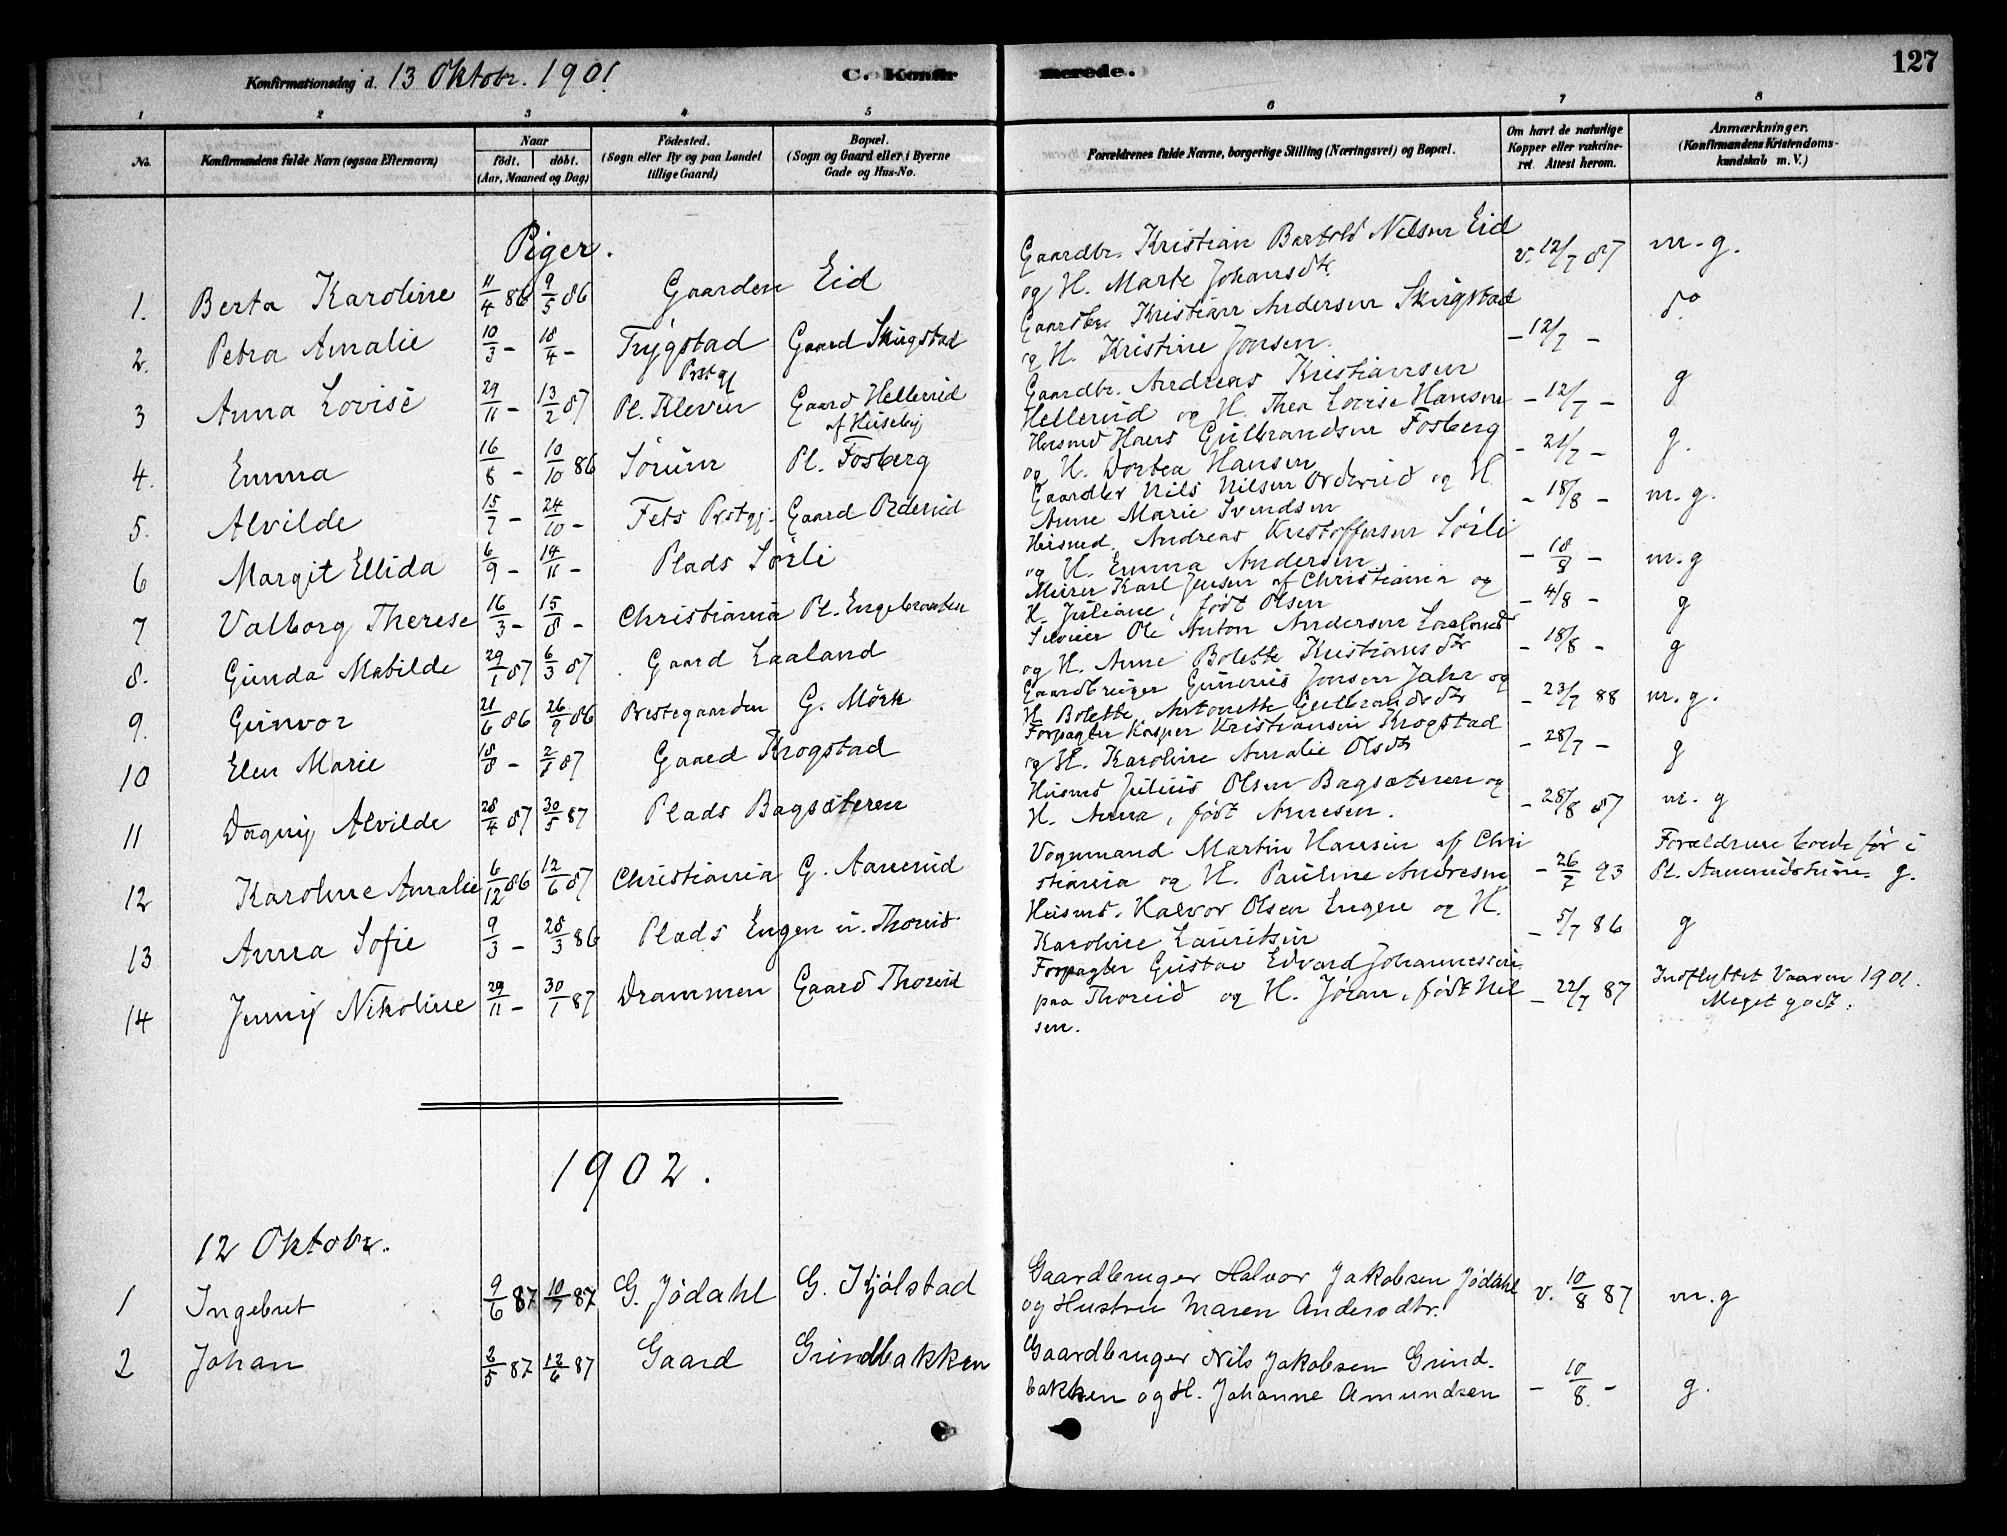 127
Konfirmationsdag d. 13 Oktobr. 1901
C. Konfirmerede.
1 2 3 4 5 6 7 8
No. Konfirmandens fulde Navn (ogsaa Efternavn) Naar født. døbt. (Aar, Maaned og Dag) Fødested. (Sogn eller By og paa Landet tillige Gaard) Bopæl. (Sogn og Gaard eller i Byerne Gade og Hus-No. Forældrenes fulde Navne, borgerlige Stilling (Næringsvei) og Bopæl. Om havt de naturlige Kopper eller vakcineret. Attest herom. Anmærkninger. (Konfirmandens Kristendomskundskab m. V.)
Piger.
1. Berta Karoline 11/4 86 9/5 86 Gaarden Eid Gaardbr. Kristian Bartold Nilsen Eid og H. Marte Johansdtr. v. 12/7 87 m.g.
2. Petra Amalie 10/3 - 18/4 - Trygstad Prstgj Gaard Skugstad Gaardbr. Kristian Andersen Skugstad og H. Kristine Jonsen. - 12/7 - do
3 Anna Lovise 29/11 - 13/2 87 Pl. Kleven Gaard Hellerud af Huseby Gaardbr. Andreas Kristiansen Hellerud og H. Thea Lovise Hansen - 12/7 - g
4. Emma 16/8 - 10/10 86 Sørum Pl. Fosberg Husmd Hans Gulbrandsen Fosberg og H. Dortea Hansen - 21/7 - g.
5. Alvilde 15/7 - 24/10 - Fets Prstgj. Gaard Orderud Gaardbr Nils Nilsen Orderud og H Anne Marie Svendsen - 18/8 - m.g.
6 Margit Ellida 6/9 - 14/11 - Plads Sørli Husmd. Andreas Kristoffersen Sørli og H. Emma Andersen. - 18/8 - m.g
7 Valborg Therese 16/3 - 15/8 - Christiania Pl. Engebraaten Murer Karl Jensen af Christiania og H. Juliane, født Olsen - 4/8 - g
8. Gunda Matilde 29/1 87 6/3 87 Gaard Laaland Ole Anton Andersen Laaland og H. Anne Bolette Kristiansdtr - 18/8 - g
9. Gunvor 21/6 86 26/9 86 Prestegaarden G. Mørk Gaardbruger Gunerius Jonsen Jahr og H. Bolette Antonette Gulbrandsdtr - 23/7 88 m.g.
10 Elen Marie 18/8 - 2/8 87 Gaard Krogstad Forpagter Kasper Kristiansen Krogstad og H. Karoline Amalie Olsdtr - 28/7 - g
11 Dagny Alvilde 28/4 87 30/5 87 Plads Bagsæteren Husmd Julius Olsen Bagsæteren og H. Anna, født Arnesen. - 28/8 87 m.g
12 Karoline Amalie 6/12 86 12/6 87 Christiania G. Aanerud Vognmand Martin Hansen af Christiania og H. Pauline Andresen - 26/7 93 Forældrene boede før i Pl. Aanerudstuen. g.
13 Anna Sofie 9/3 - 28/3 86 Plads Engen u. Thoreid Husmd. Halvor Olsen Engen og H. Karoline Lauritsen - 5/7 86 g
14 Jenny Nikoline 29/11 - 30/1 87 Drammen Gaard Thoreid Forpagter Gustav Edvard Johannessen paa Thoreid og H. Joran, født Nilsen. - 22/7 87 Indflyttet Vaaren 1901. Meget godt.
1902.
12 Oktobr.
1 Ingebret 9/6 87 10/7 87 G. Jødahl G. Kjølstad Gaardbruger Halvor Jakobsen Jødahl og Hustru Maren Andersdtr. v. 10/8 87 m.g
2 Johan 2/5 87 12/6 87 Gaard Grindbakken Gaardbruger Nils Jakobsen Grindbakken og H. Johanne Amundsen - 10/8 - g.